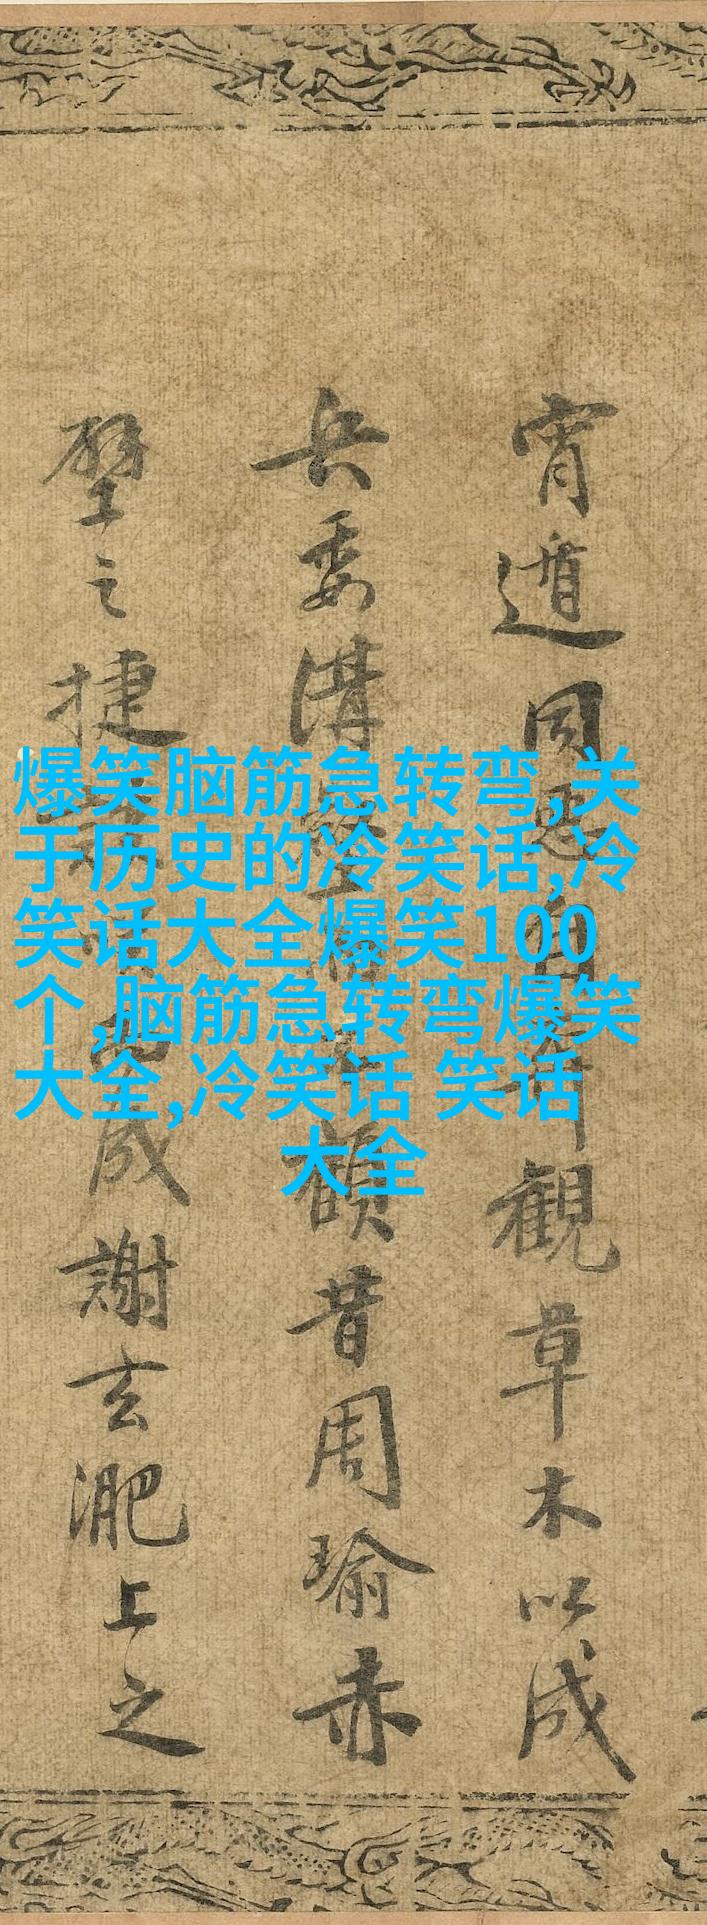 爆笑脑筋急转弯,关
于历史的冷笑话,冷
笑话大全爆笑100
个,脑筋急转弯爆笑
大全,冷笑话 笑话
大全
宵遁自觀草木以成
兵委溝昔周瑜赤
壁之捷成謝玄淝上之